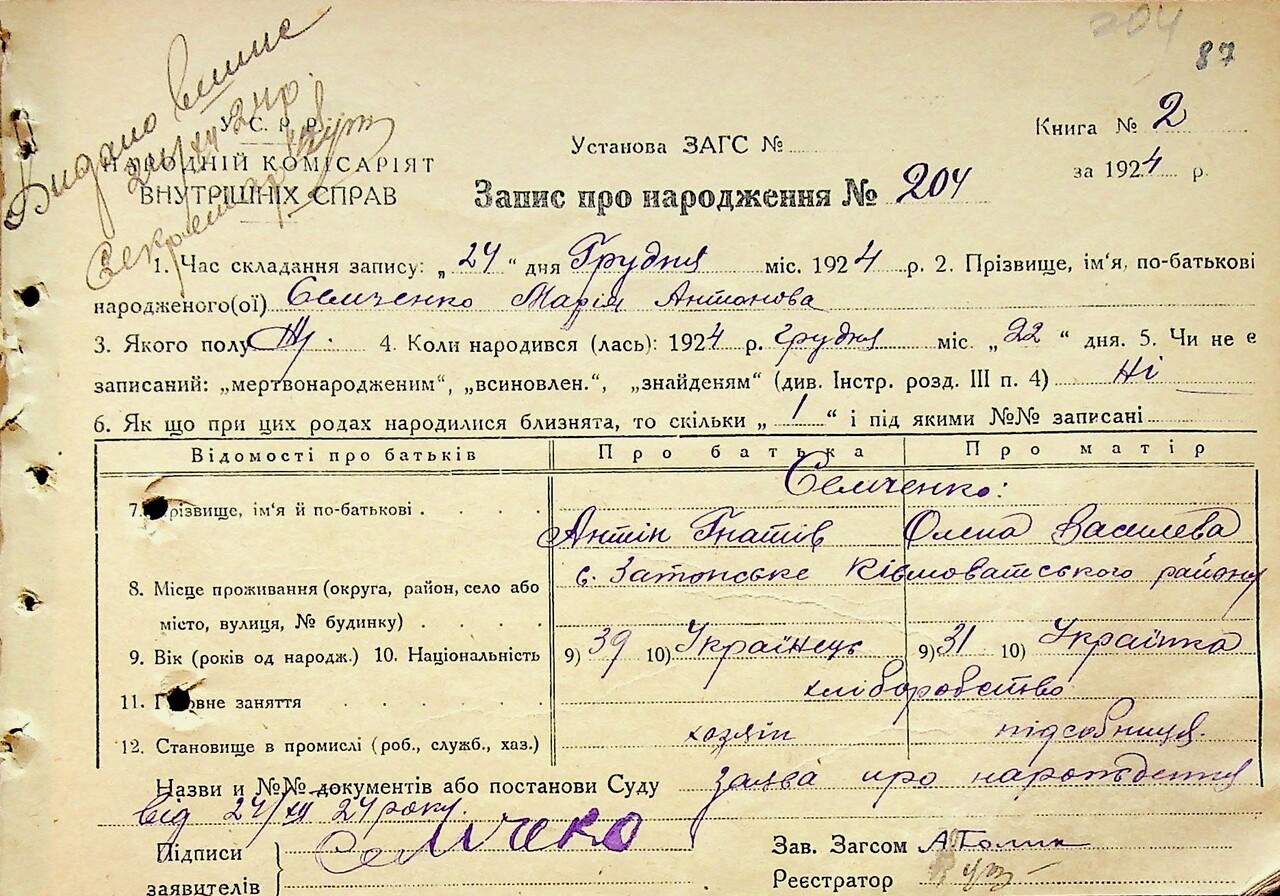 204
87
Видано
24/XII 24 р.
Секретар
У. С. Р. Р.
НАРОДНІЙ КОМІСАРІЯТ
ВНУТРІШНІХ СПРАВ
Установа ЗАГС №
Книга № 2
за 1924 р.
Запис про народження № 204
1. Час складання запису: „ 24 “ дня Грудня міс. 1924 р. 2. Прізвище, ім'я, по-батькові
народженого(ої) Семченко Марія Антонова
3. Якого полу Ж. 4. Коли народився (лась): 1924 р. грудня міс. „ 22 “ дня. 5. Чи не є
записаний: „мертвонародженим“, „всиновлен.“, „знайденям“ (див. Інстр. розд. III п. 4) Ні
6. Як що при цих родах народилися близнята, то скільки „ 1 “ і під якими №№ записані
Відомості про батьків Про батька Про матір
Семченко:
7. Прізвище, ім'я й по-батькові
Антін Гнатів Олена Василева
с. Затонське району
8. Місце проживання (округа, район, село або
місто, вулиця, № будинку)
9. Вік (років од народж.) 10. Національність 9) 39 10) Українець 9) 31 10) Українка
11. Головне заняття хліборобство
12. Становище в промислі (роб., служб., хаз.) хозяін підсобниця.
Назви и №№ документів або постанови Суду заява про народження
від 24/XII 24 року.
Підписи
заявителів
Семчеко
Зав. Загсом
Реєстратор